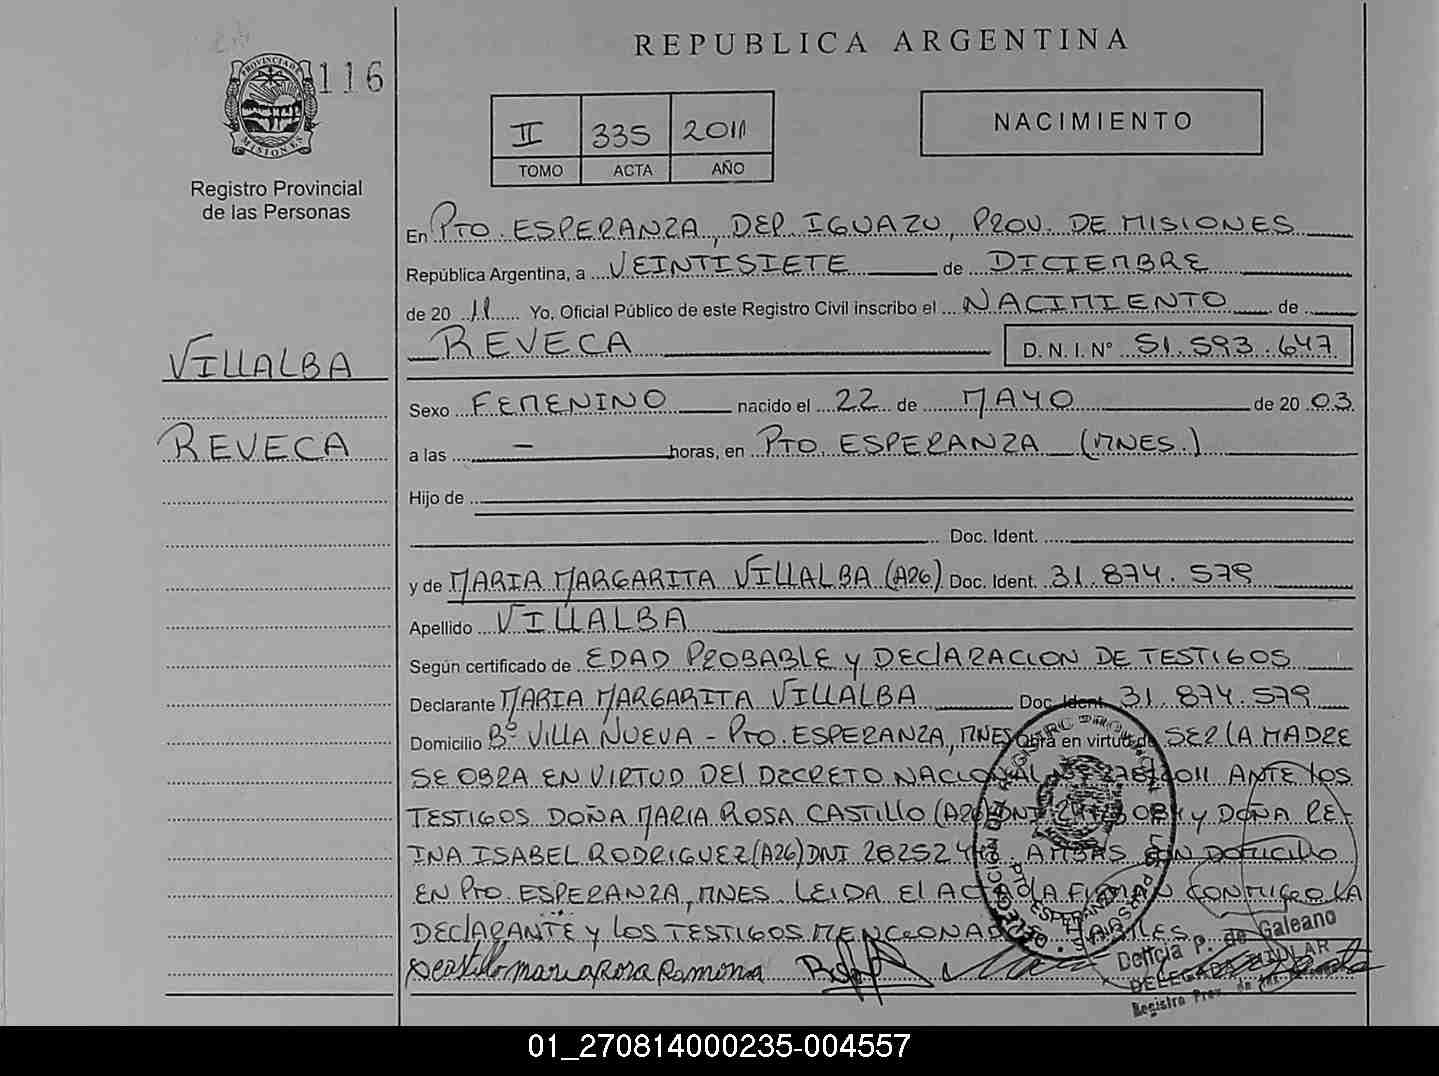 REPUBLICA ARGENTINA
PROVINCIA DE MISIONES
116
Registro Provincial
de las Personas
II 335 2011
TOMO ACTA AÑO
NACIMIENTO
VILLALBA
REVECA
En PTO. ESPERANZA, DEP. IGUAZU, PROV. DE MISIONES
República Argentina, a VEINTISIETE de DICIEMBRE
de 20 11 Yo, Oficial Público de este Registro Civil inscribo el NACIMIENTO de
REVECA D. N. I. N° 51.593.647
Sexo FEMENINO nacido el 22 de MAYO de 20 03
a las - horas, en PTO. ESPERANZA (MNES.)
Hijo de
Doc. Ident.
y de MARIA MARGARITA VILLALBA (A26) Doc. Ident. 31.874.579
Apellido VILLALBA
Según certificado de EDAD PROBABLE Y DECLARACION DE TESTIGOS
Declarante MARIA MARGARITA VILLALBA Doc. Ident. 31.874.579
Domicilio Bº VILLA NUEVA - PTO. ESPERANZA, MNES Obra en virtud de SER LA MADRE
SE OBRA EN VIRTUD DEL DECRETO NACIONAL 278/2011 ANTE LOS
TESTIGOS DOÑA MARIA ROSA CASTILLO (A26) DNI Y DOÑA RE-
INA ISABEL RODRIGUEZ (A26) DNI AMBAS CON DOMICILIO
EN PTO. ESPERANZA, MNES. LEIDA EL ACTA LA FIRMAN CONMIGO LA
DECLARANTE Y LOS TESTIGOS MENCIONADOS HABILES
Castillo maria Rosa Ramona
DELEGACIÓN DEL REGISTRO PROVINCIAL DE LAS PERSONAS
PTO. ESPERANZA
Delicia P. de Galeano
DELEGADA TITULAR
Registro Prov. de las Personas
01_270814000235-004557